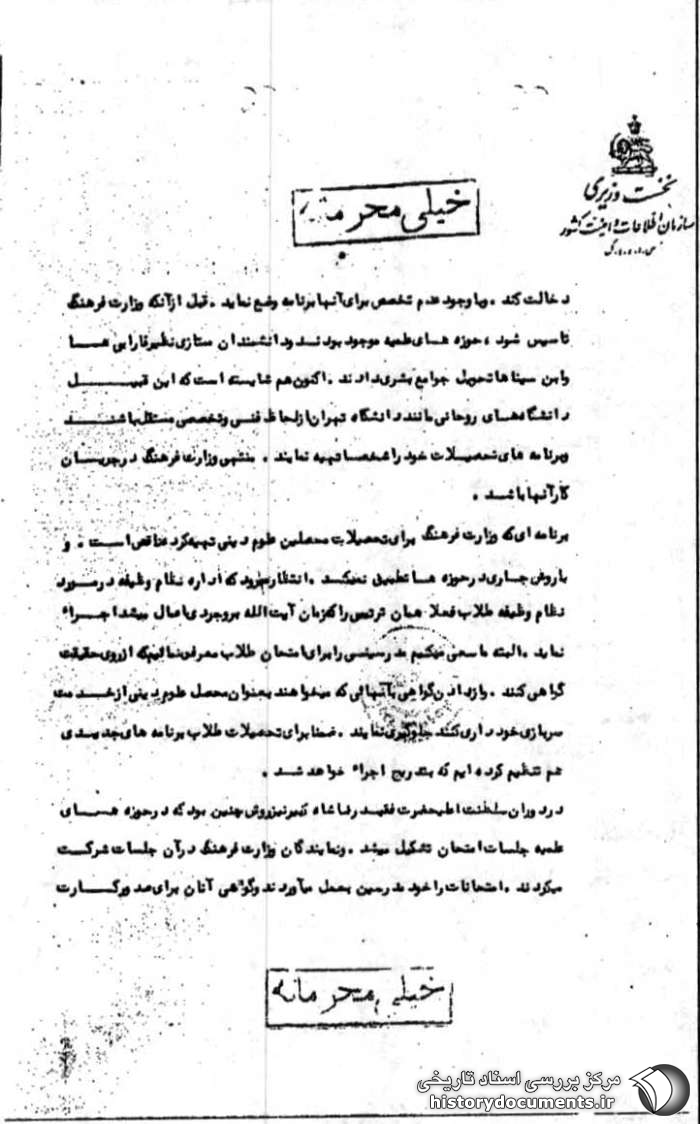 نخست وزیری
سازمان اطلاعات و امنیت کشور
س.ا.و.ا.ک
خیلی محرمانه
دخالت کند . وبا وجود عدم تخصص برای آنها برنامه وضع نماید . قبل از آنکه وزارت فرهنگ
تاسیس شود ، حوزه های علمیه موجود بودند ودانشمندان ممتازی نظیر فارابی ها
وابن سیناها تحویل جوامع بشری دادند . اکنون هم شایسته است که این قبیل
دانشگاههای روحانی مانند دانشگاه تهران از لحاظ فنی وتخصصی مستقل باشند
وبرنامه های تحصیلات خود را شخصا تهیه نمایند . منتهی وزارت فرهنگ درجریان
کارآنها باشد .
برنامه ای که وزارت فرهنگ برای تحصیلات محصلین علوم دینی تهیه کرد ناقص است . و
با روش جاری در حوزه ها تطبیق نمیکند . انتظار میرود که اداره نظام وظیفه در مورد
نظام وظیفه طلاب فعلا همان ترتیبی را که زمان آیت الله بروجردی اعمال میشد اجراء
نماید . البته ما سعی میکنیم مدرسینی را برای امتحان طلاب معرفی نمائیم که از روی حقیقت
گواهی کنند . واز دادن گواهی بآنهائی که میخواهند بعنوان محصل علوم دینی از خدمت
سربازی خود داری کنند جلوگیری نمایند . ضمنا برای تحصیلات طلاب برنامه های جدیدی
هم تنظیم کرده ایم که بتدریج اجراء خواهد شد .
در دوران سلطنت اعلیحضرت فقید رضا شاه کبیر نیز روش چنین بود که در حوزه های
علمیه جلسات امتحان تشکیل میشد . ونمایندگان وزارت فرهنگ در آن جلسات شرکت
میکردند . امتحانات را خود مدرسین بعمل میآوردند وگواهی آنان برای صدور کارت
خیلی محرمانه
مرکز بررسی اسناد تاریخی
historydocuments.ir